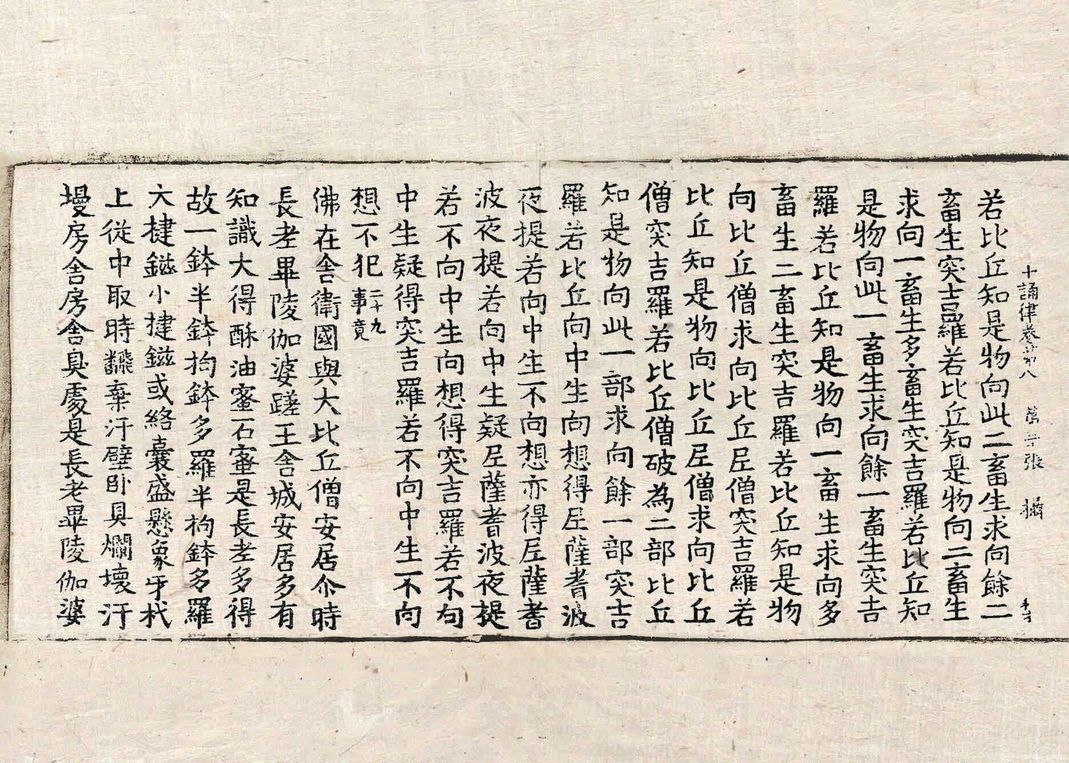 十誦律卷第八 第二張 攝
若比丘知是物向此二畜生求向餘二
畜生突吉羅若比丘知是物向二畜生
求向一畜生多畜生突吉羅若比丘知
是物向此一畜生求向餘一畜生突吉
羅若比丘知是物向一畜生求向多
畜生二畜生突吉羅若比丘知是物
向比丘僧求向比丘尼僧突吉羅若
比丘知是物向比丘尼僧求向比丘
僧突吉羅若比丘僧破為二部比丘
知是物向此一部求向餘一部突吉
羅若比丘向中生向想得尼薩耆波
夜提若向中生不向想亦得尼薩耆
波夜提若向中生疑尼薩耆波夜提
若不向中生向想得突吉羅若不向
中生疑得突吉羅若不向中生不向
想不犯二十九事竟
佛在舍衛國與大比丘僧安居尒時
長老畢陵伽婆蹉王舍城安居多有
知識大得酥油蜜石蜜是長老多得
故一鉢半鉢拘鉢多羅半拘鉢多羅
大揵鎡小揵鎡或絡囊盛懸象牙杙
上從中取時飜棄汙壁卧具爛壞汙
墁房舍房舍臭處是長老畢陵伽婆